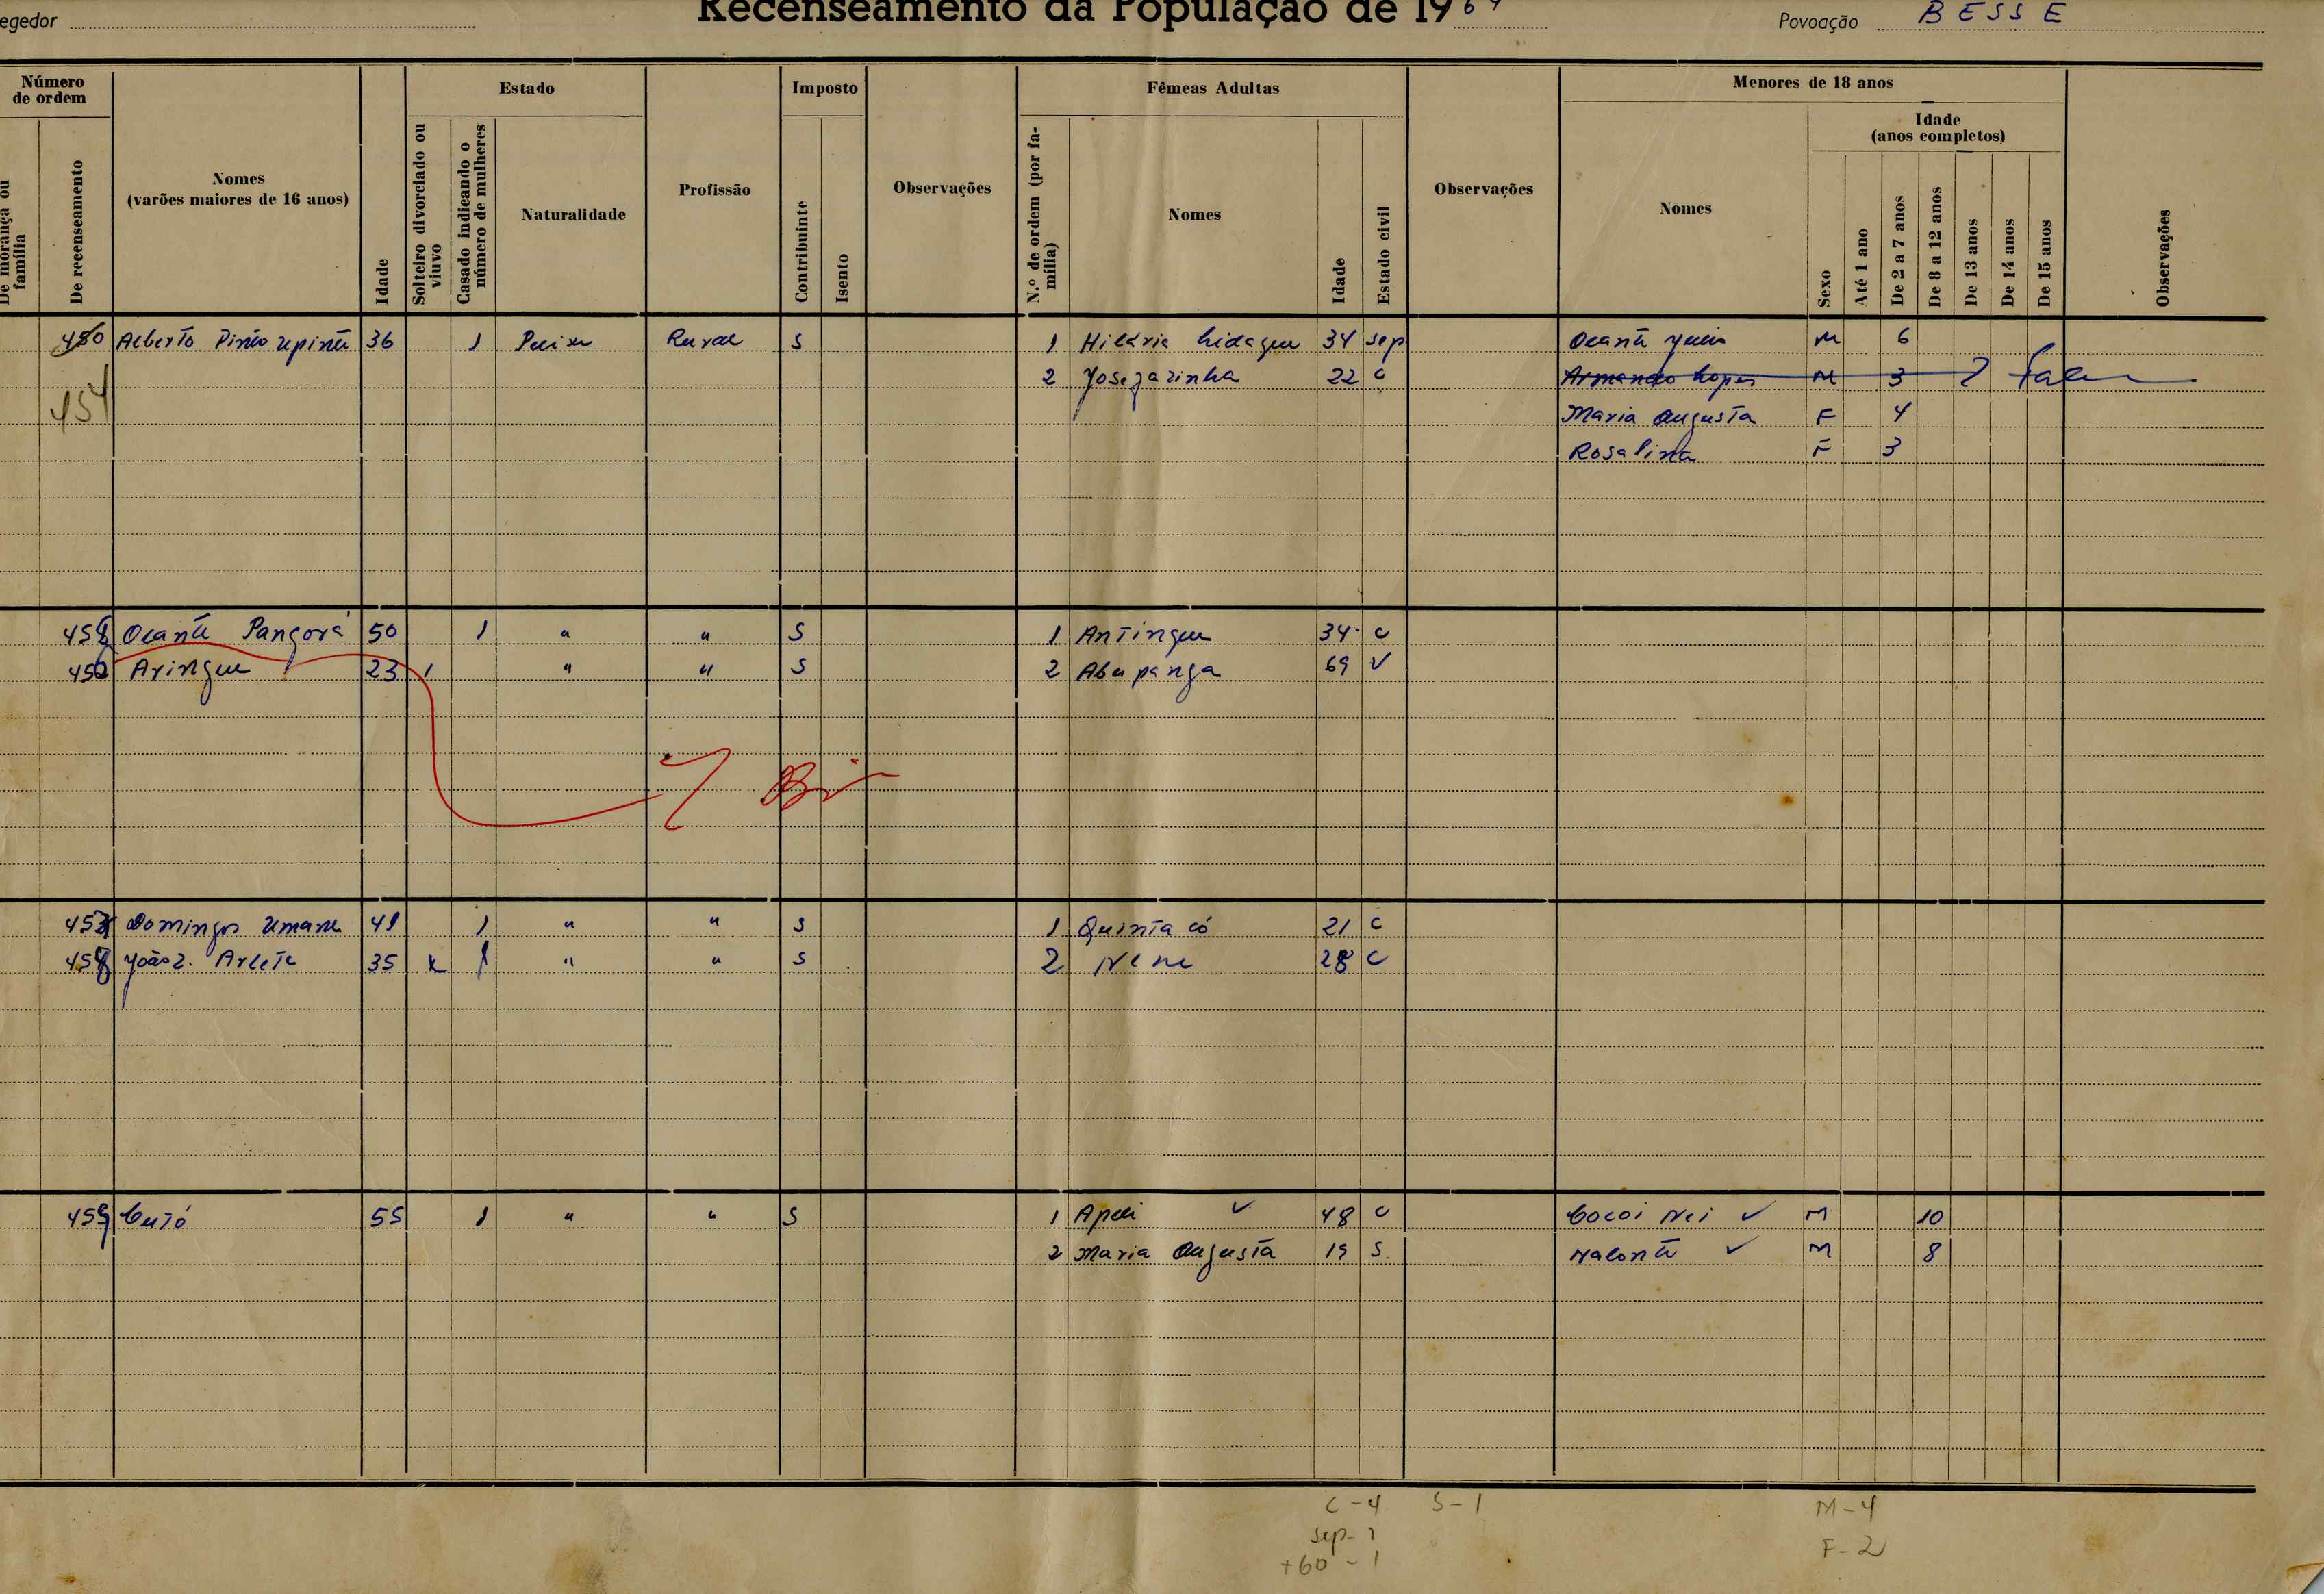 egedor
Recenseamento da População de 1964
Povoação BESSE
Número de ordem
De morança ou família
De recenseamento
Nomes
(varões maiores de 16 anos)
Idade
Estado
Solteiro divorciado ou viuvo
Casado indicando o número de mulheres
Naturalidade
Profissão
Imposto
Contribuinte
Isento
Observações
Fêmeas Adultas
N.º de ordem (por família)
Nomes
Idade
Estado civil
Observações
Menores de 18 anos
Nomes
Sexo
Idade
(anos completos)
Até 1 ano
De 2 a 7 anos
De 8 a 12 anos
De 13 anos
De 14 anos
De 15 anos
Observações
450 Alberto Pinto 36 1 Rural S 1 Hilária 34 sep M 6
2 22 C Armando Lopes M 3
454 Maria Augusta F 4
Rosalina F 3
Ocantē Pangorá 50 1 " " S 1 Antingue 34 C
Aringue 23 1 " " S 2 Abupanga 69 V
Domingos Umane 41 1 " " S 1 Quinta có 21 C
João 35 " " S 2 Nene 28 C
459 Cutó 55 1 " " S 1 48 C Cocoi Nei M 10
2 Maria Augusta 19 S M 8
C-4 S-1 M-4
sep-1 F-2
+60-1